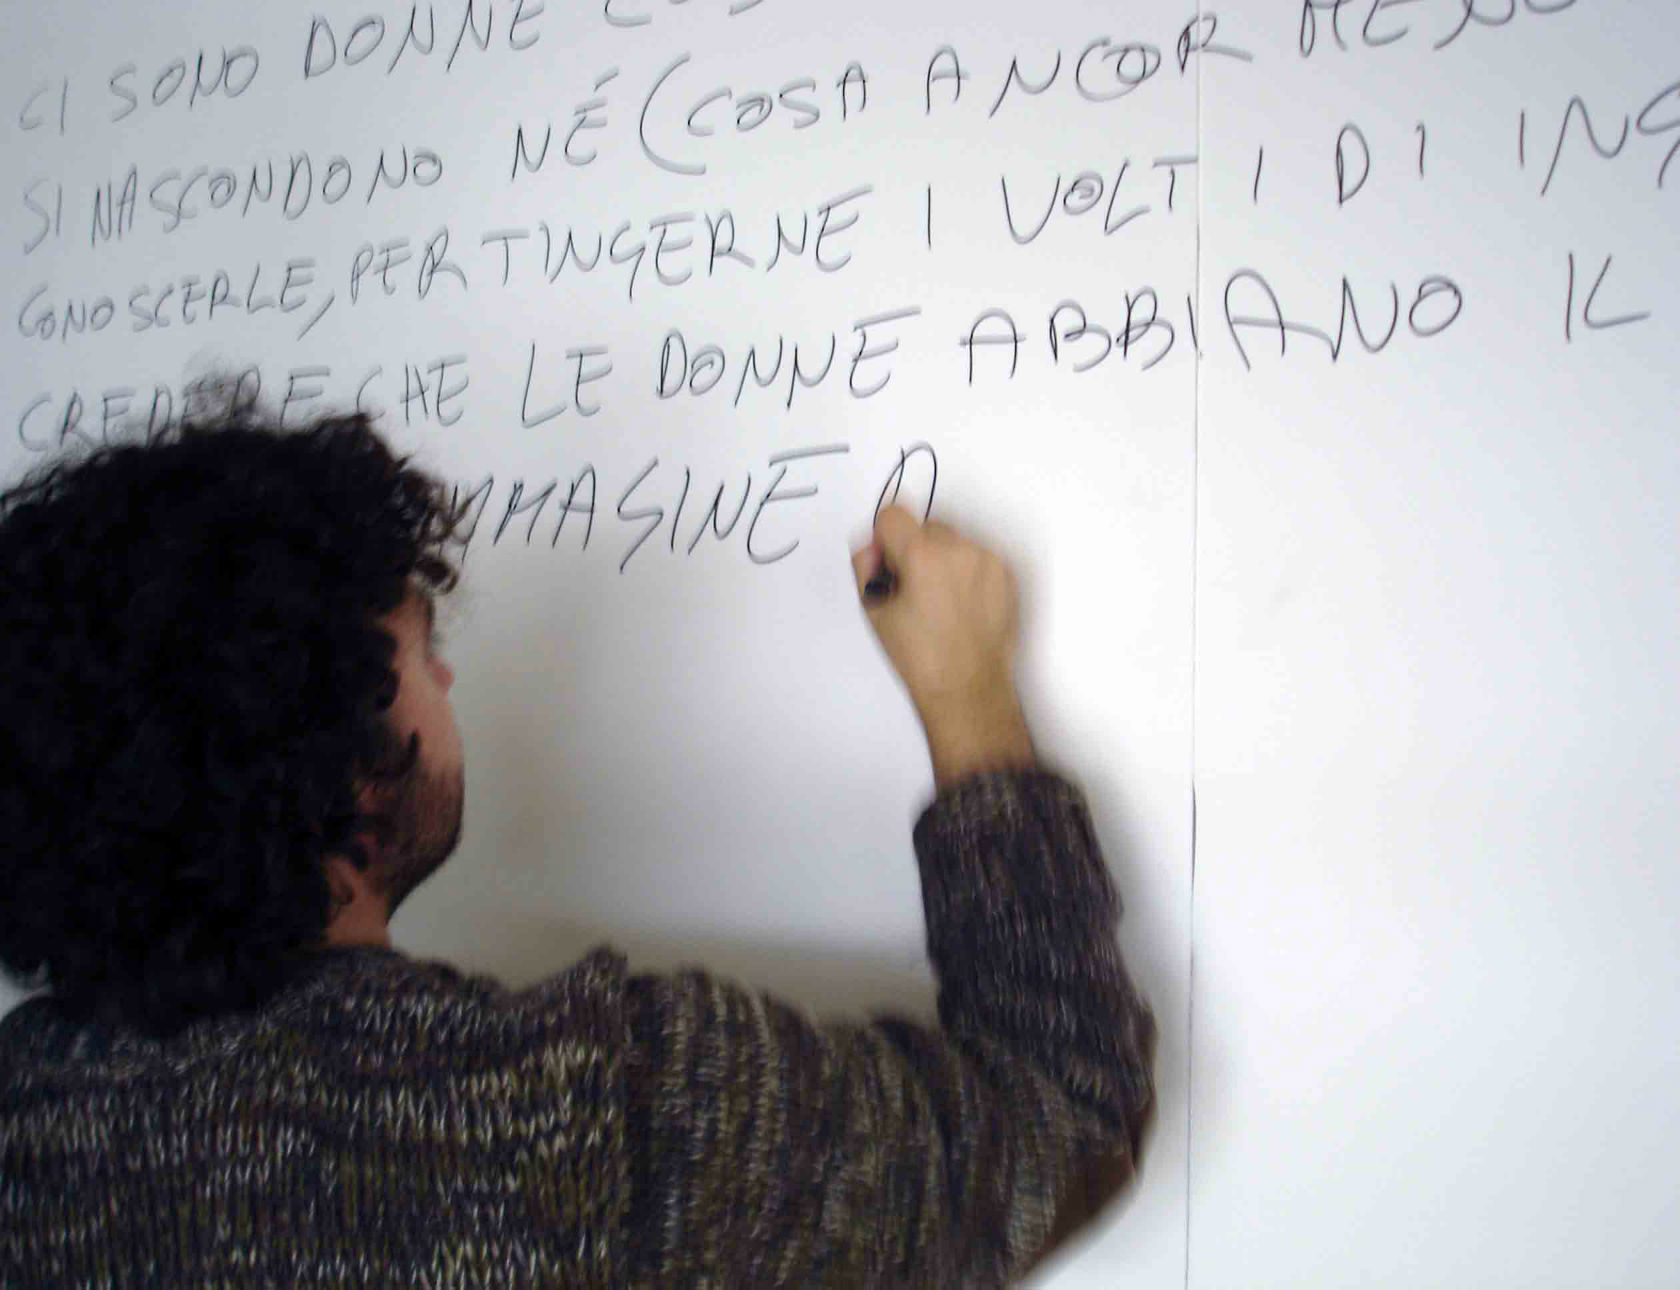 CI SONO DONNE
SI NASCONDONO NÉ (COSA ANCOR MENO
CONOSCERLE, PER TINGERNE I VOLTI DI
CREDERE CHE LE DONNE ABBIANO IL
IMMAGINE